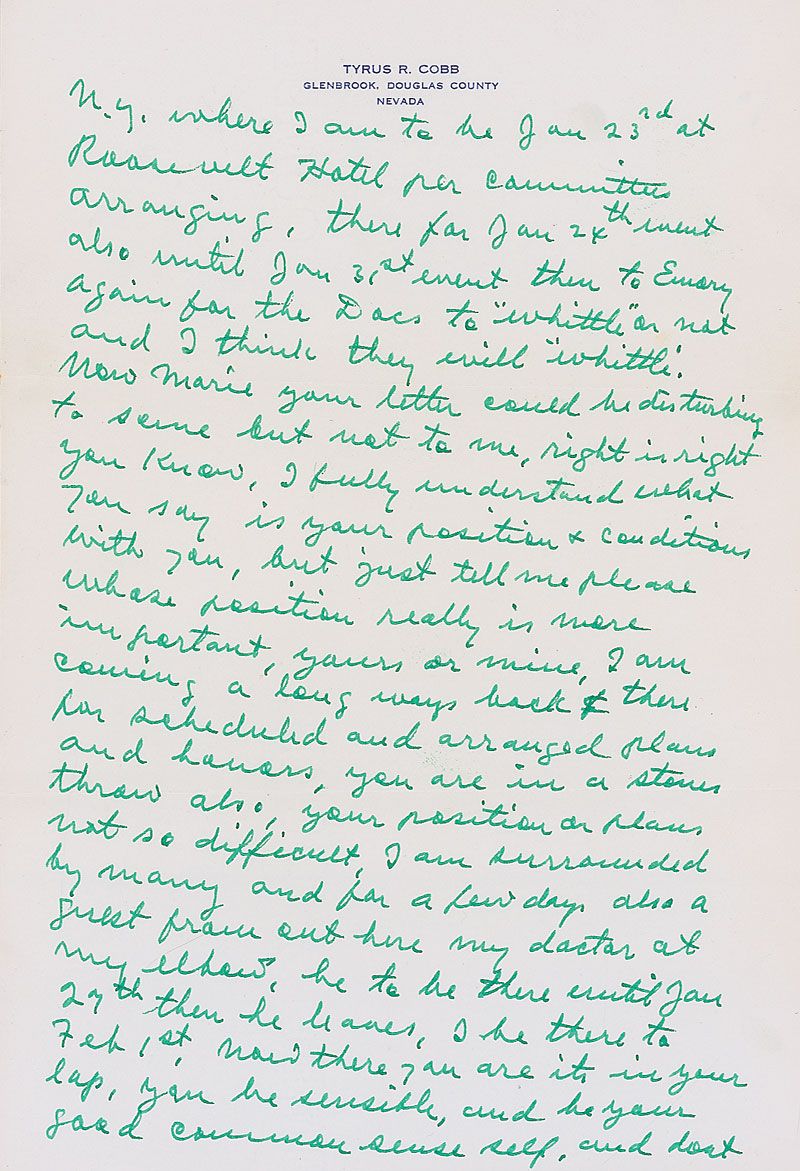 TYRUS R. COBB
GLENBROOK, DOUGLAS COUNTY
NEVADA
N.Y. where I am to be Jan 23rd at
Roosevelt Hotel per committees
arranging, there for Jan 24th event
also until Jan 31st event then to Emory
again for the Docs to "whittle" or not
and I think they will "whittle".
Now Marie your letter could be disturbing
to some but not to me, right is right
you know, I fully understand what
you say is your position & conditions
with you, but just tell me please
whose position really is more
important, yours or mine, I am
coming a long ways back & there
for scheduled and arranged plans
and honors, you are in a stones
throw also, your position or plans
not so difficult, I am surrounded
by many and for a few days also a
guest from out here my doctor at
my elbow, he to be there until Jan
27th then he leaves, I be there to
Feb 1st, Now there you are its in your
lap, you be sensible, and be your
good common sense self, and dont